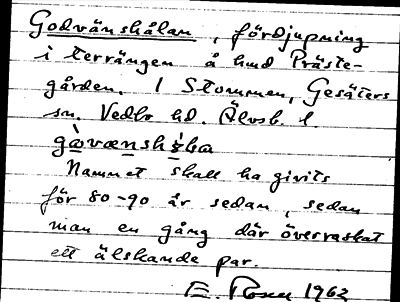 Godvänshålan, fördjupning
i terrängen å hmd Präste-
gården. 1 Stommen, Gesäters
sn. Vedbo hd. Älvsb. l.
Namnet skall ha givits
för 80-90 år sedan, sedan
man en gång där överraskat
ett älskande par.
E. 1962